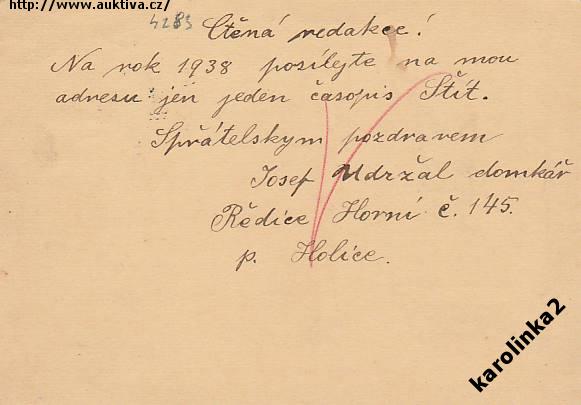 http://www.auktiva.cz/
4283
Ctěná redakce!
Na rok 1938 posílejte na mou
adresu jen jeden časopis Štít.
Spřátelskym pozdravem
Josef Udržal domkář
Ředice Horní č. 145.
p. Holice.
karolinka2